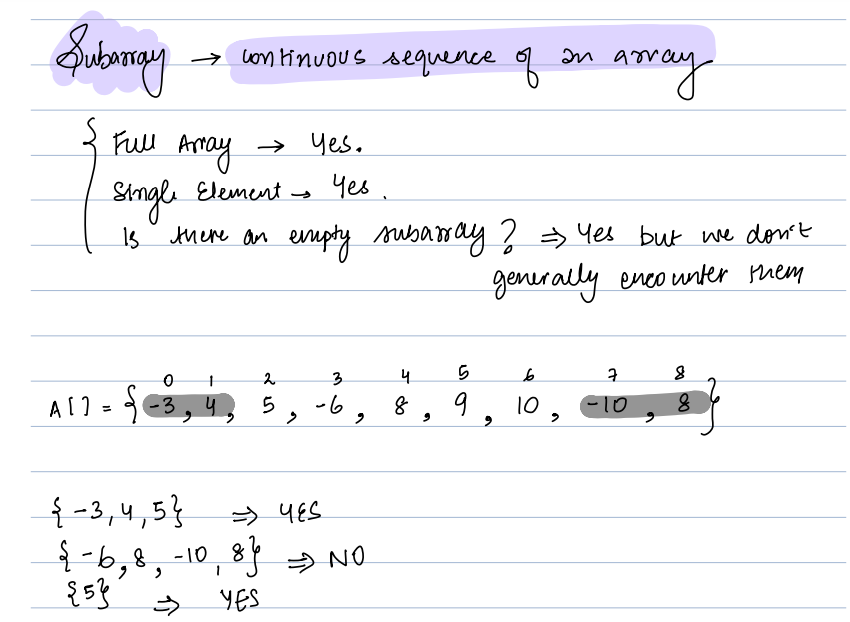 Subarray → continuous sequence of an array
Full Array → Yes.
Single Element → Yes.
Is there an empty subarray? ⇒ Yes but we don't
generally encounter them
0 1 2 3 4 5 6 7 8
A[] = {-3, 4, 5, -6, 8, 9, 10, -10, 8}
{-3, 4, 5} ⇒ YES
{-6, 8, -10, 8} ⇒ NO
{5} ⇒ YES